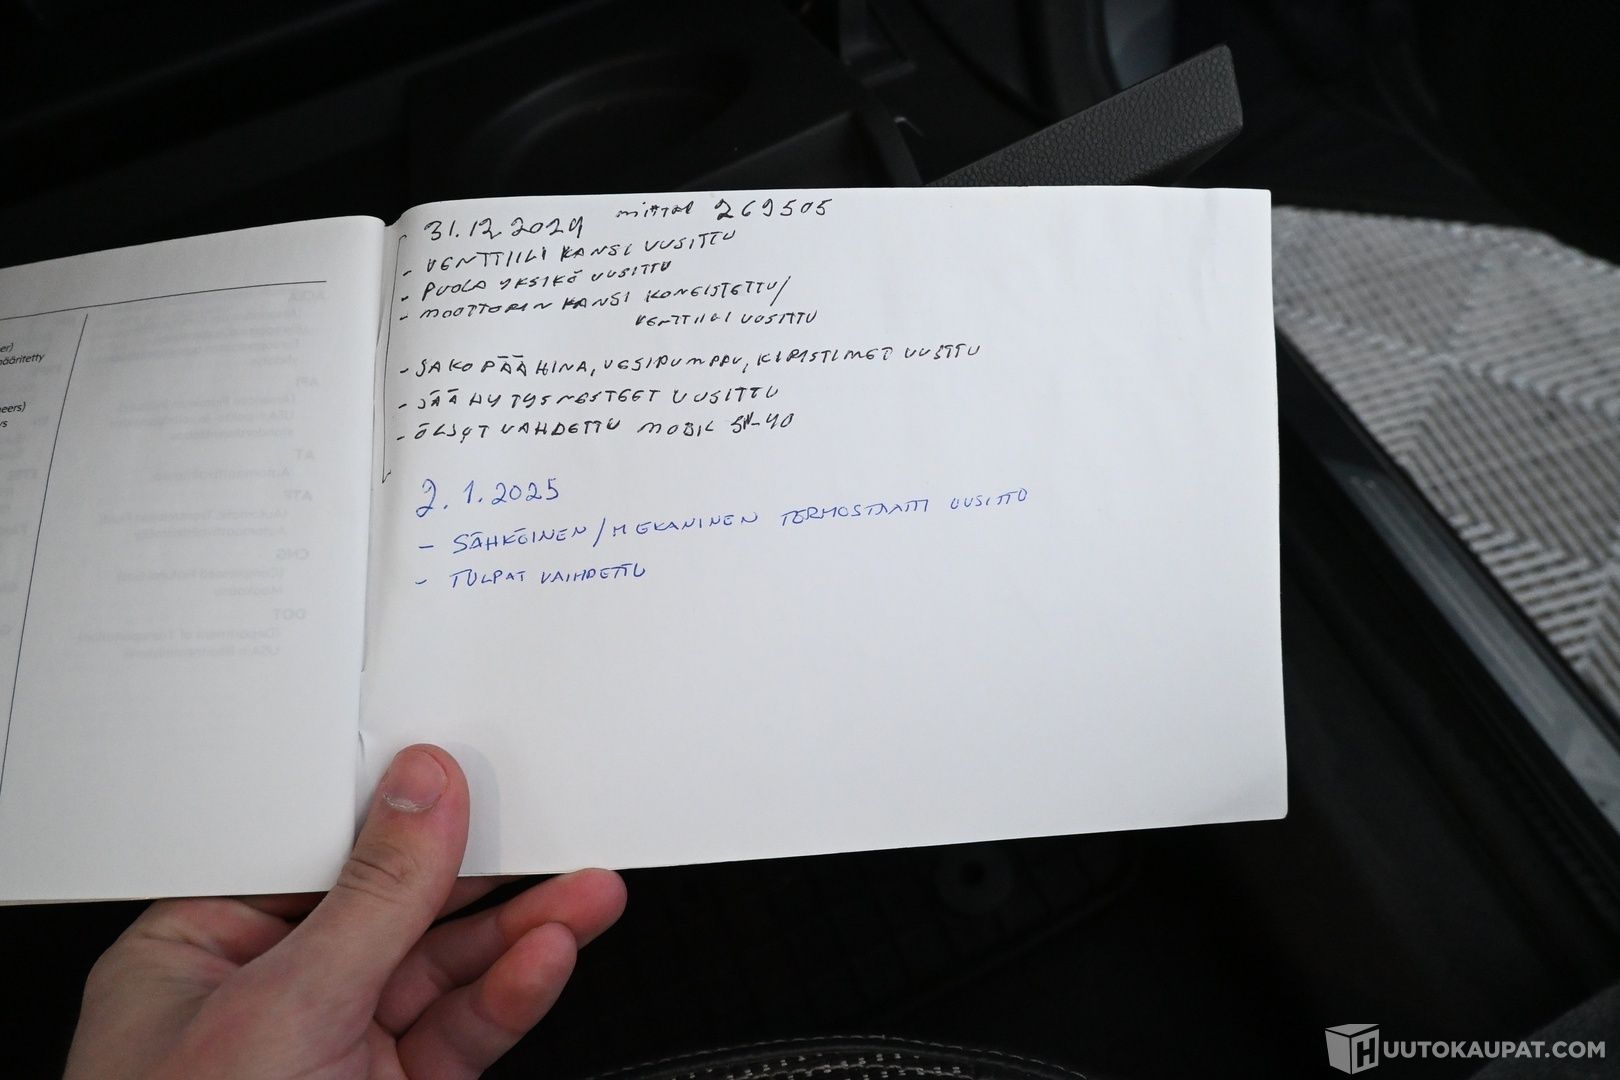 er)
määritetty
eers)
ys
31.12.2024 MITTAR 269505
- VENTTIILI KANSI UUSITTU
- PUOLA YKSIKÖ UUSITTU
- MOOTTORIN KANSI KONEISTETTU/
VENTTIILI UUSITTU
- JAKOPÄÄ HINA, VESIPUMPPU, KIRISTIMET UUSITTU
- JÄÄHYTYSNESTEET UUSITTU
- ÖLJYT VAHDETTU MOBIL 5W-40
2.1.2025
- SÄHKÖINEN/MEKANINEN TERMOSTAATTI UUSITTU
- TULPAT VAIHDETTU
HUUTOKAUPAT.COM